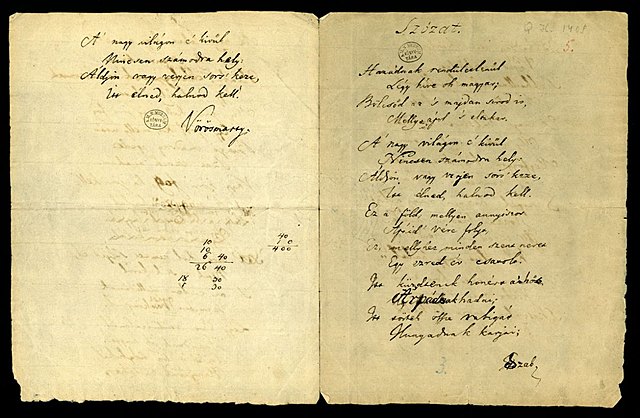 A' nagy világon é kivűl
Nincsen számodra hely:
Áldjon vagy verjen sors' keze,
Itt élned, halnod kell.
Vörösmarty.
10
10
6 40
26 40
18 30
1 30
40
10
400
Szózat.
5.
Hazádnak rendűletlenűl
Légy híve oh magyar;
Bölcsőd az 's majdan sírod is,
Melly ápol 's eltakar.
A' nagy világon é kivűl
Nincsen számodra hely;
Áldjon vagy verjen sors' keze,
Itt élned, halnod kell.
Ez a' föld, mellyen annyiszor
Apáid' vére folyt;
Ez, mellyhez minden szent nevet
Egy ezred év csatolt.
Itt küzdtenek honért a' hős
Árpádnak hadai;
Itt törtek össze rabigát
Hunyadnak karjai;
Szab